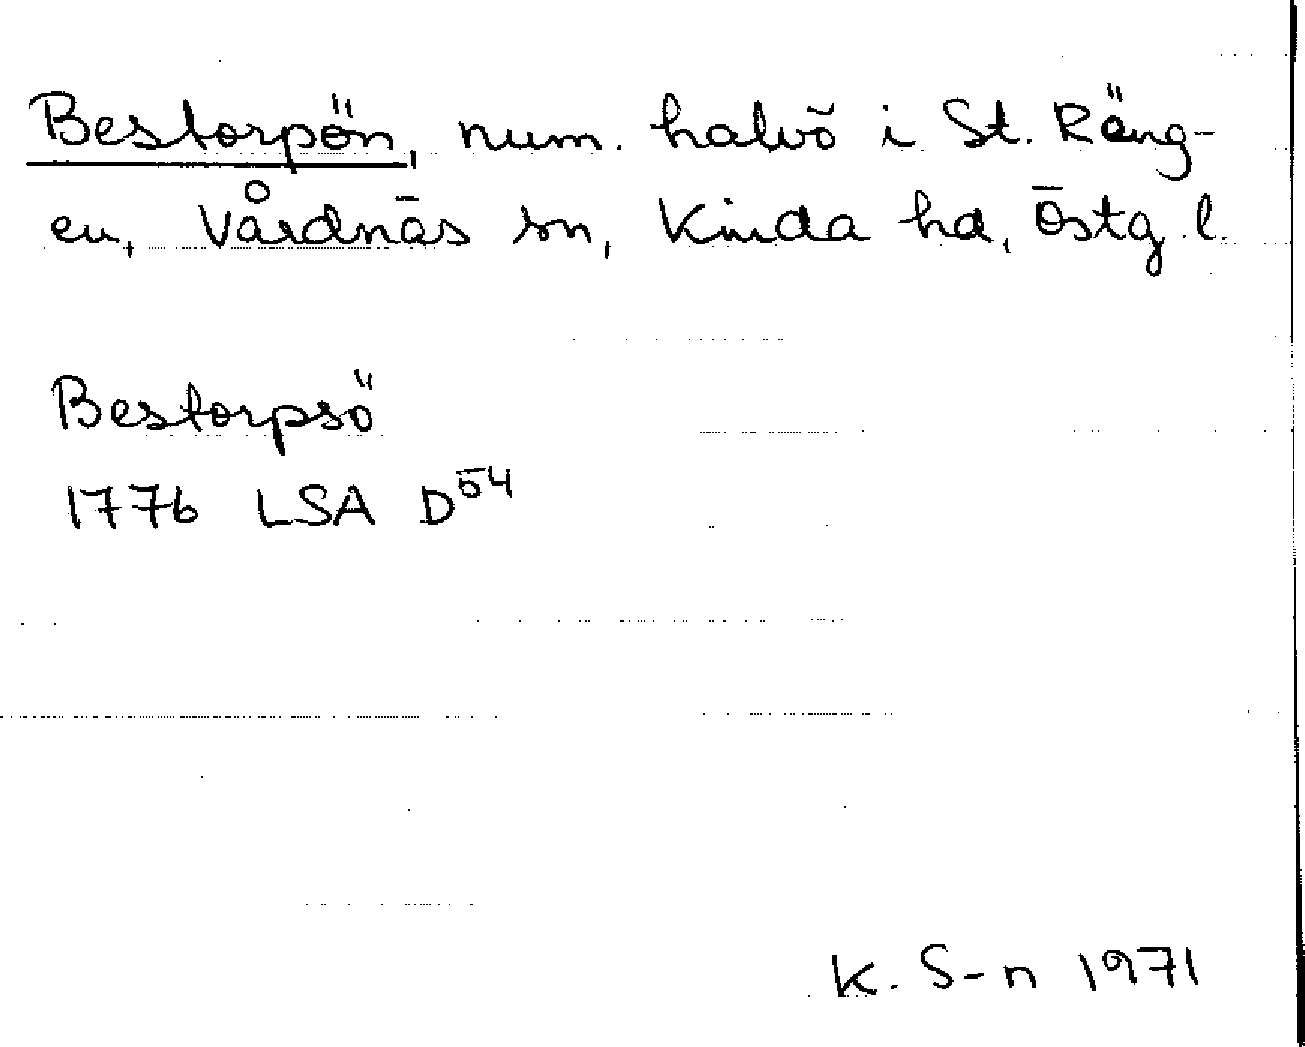 Bestorpön, num. halvö i St. Räng-
en, Vårdnäs sn, Kinda hd, Östg. l.
Bestorpsö
1776 LSA D54
K. S-n 1971